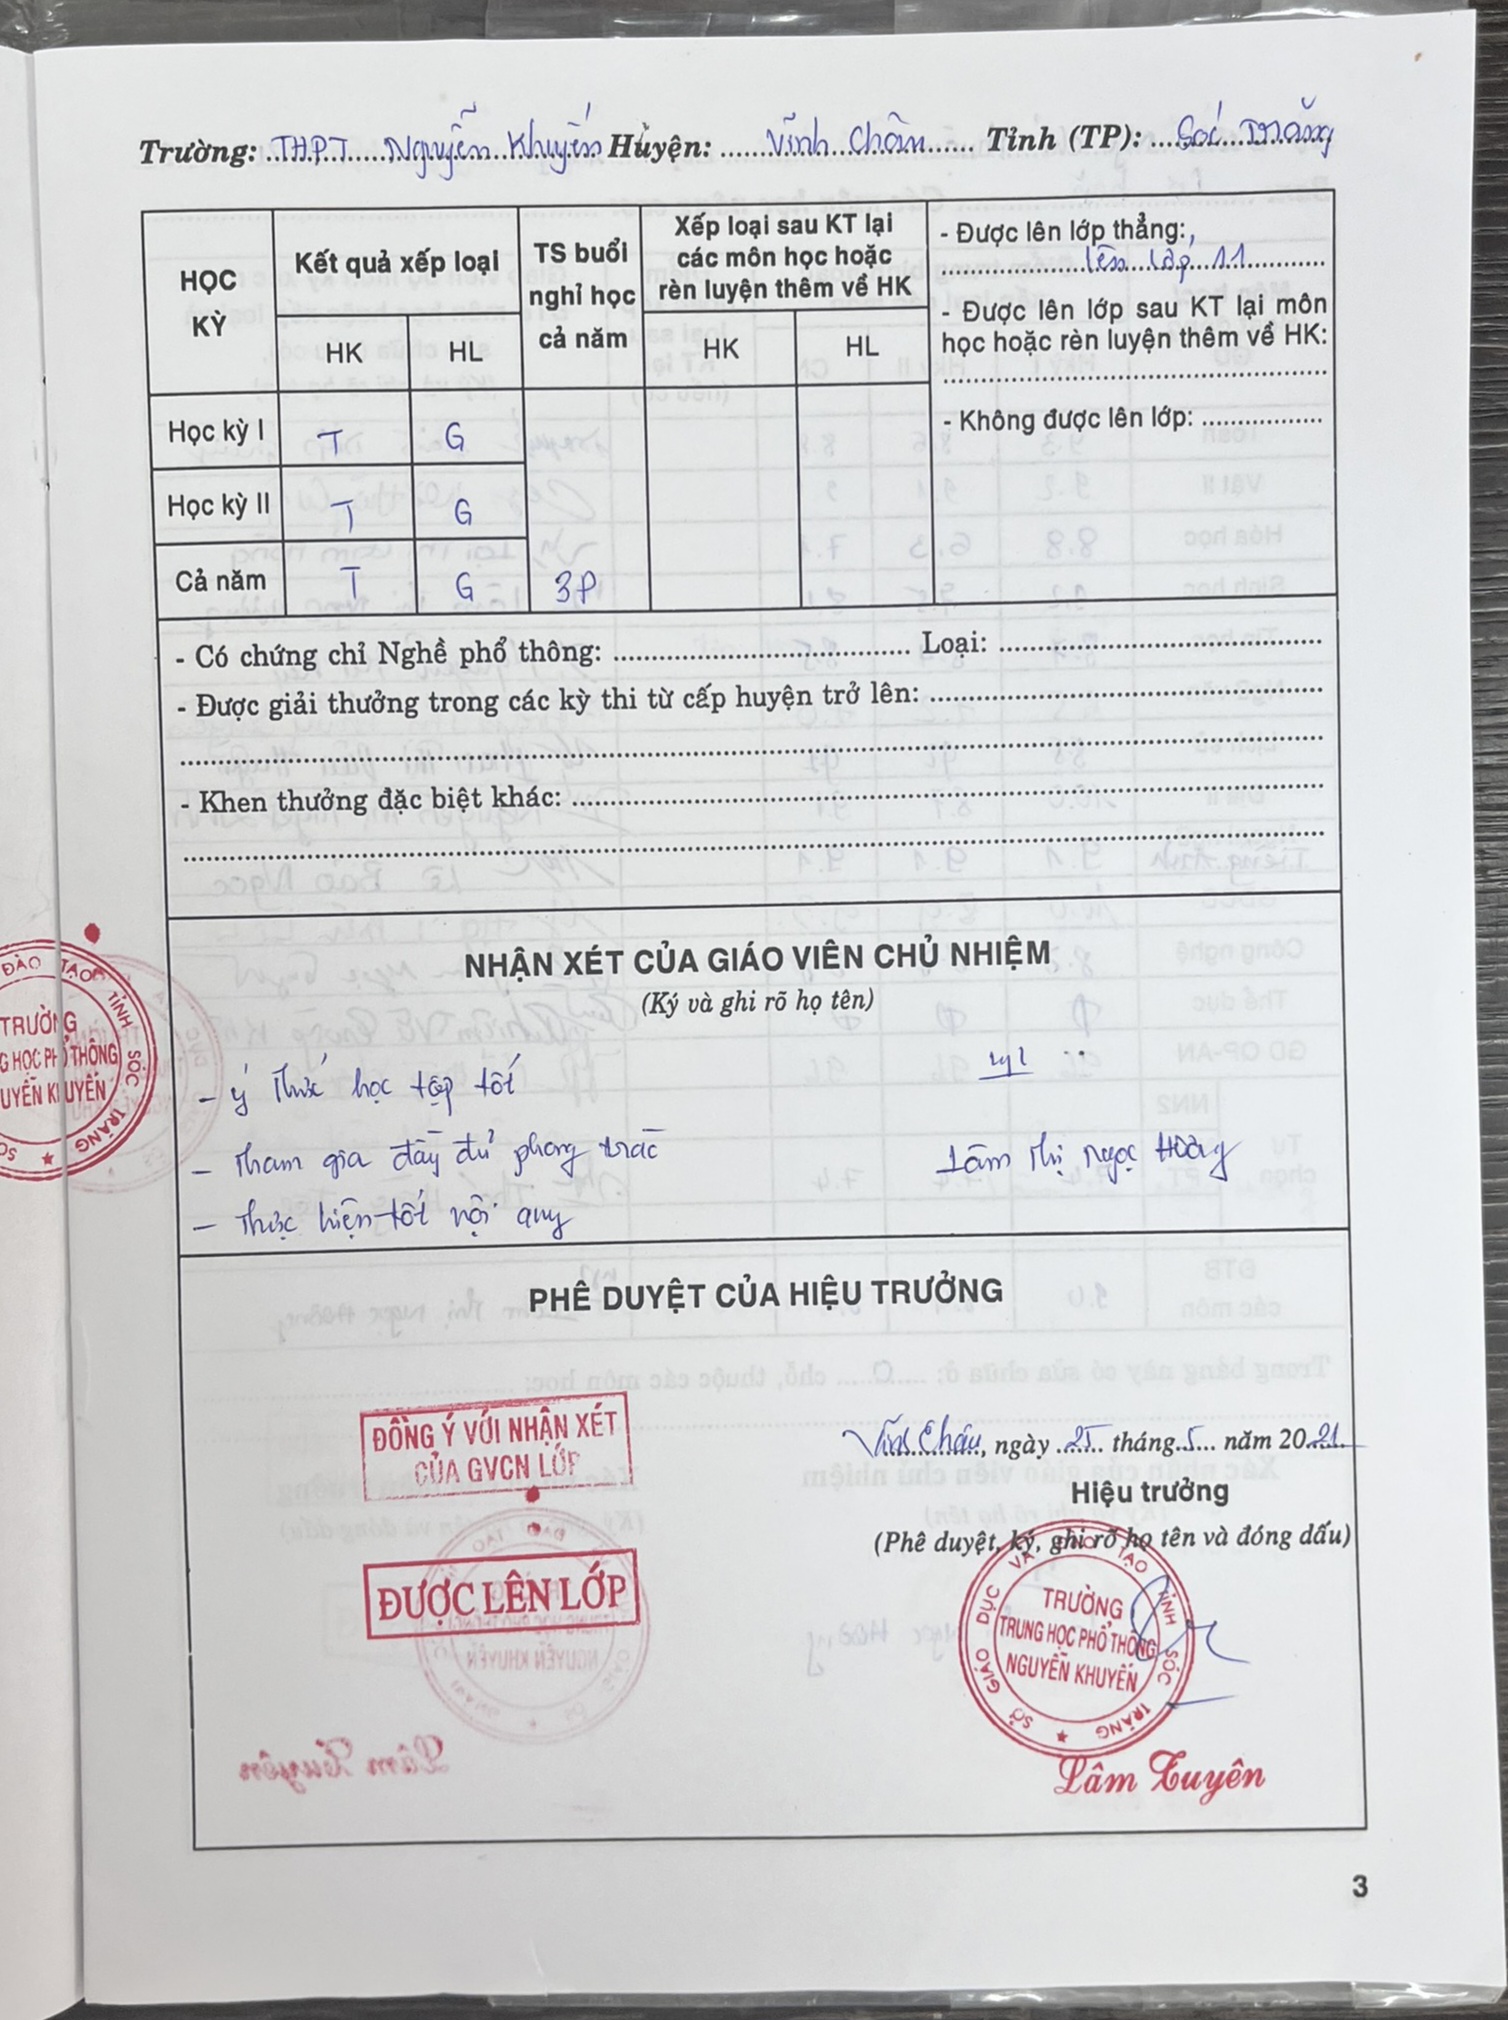 Trường: THPT Nguyễn Khuyến Huyện: Vĩnh Châu Tỉnh (TP): Sóc Trăng
HỌC KỲ
Kết quả xếp loại
TS buổi nghỉ học cả năm
Xếp loại sau KT lại các môn học hoặc rèn luyện thêm về HK
HK HL HK HL
- Được lên lớp thẳng:
lên lớp 11
- Được lên lớp sau KT lại môn
học hoặc rèn luyện thêm về HK:
- Không được lên lớp:
Học kỳ I T G
Học kỳ II T G
Cả năm T G 3P
- Có chứng chỉ Nghề phổ thông: Loại:
- Được giải thưởng trong các kỳ thi từ cấp huyện trở lên:
- Khen thưởng đặc biệt khác:
NHẬN XÉT CỦA GIÁO VIÊN CHỦ NHIỆM
(Ký và ghi rõ họ tên)
- ý thức học tập tốt
- Tham gia đầy đủ phong trào
- Thực hiện tốt nội quy
Lâm Thị Ngọc Hoàng
ĐÀO TẠO TỈNH SÓC TRĂNG
TRƯỜNG
G HỌC PHỔ THÔNG
UYỄN KHUYẾN
PHÊ DUYỆT CỦA HIỆU TRƯỞNG
ĐỒNG Ý VỚI NHẬN XÉT
CỦA GVCN LỚP
ĐƯỢC LÊN LỚP
Vĩnh Châu, ngày 25 tháng 5 năm 2021
Hiệu trưởng
(Phê duyệt, ký, ghi rõ họ tên và đóng dấu)
SỞ GIÁO DỤC VÀ ĐÀO TẠO TỈNH SÓC TRĂNG
TRƯỜNG
TRUNG HỌC PHỔ THÔNG
NGUYỄN KHUYẾN
Lâm Tuyên
3